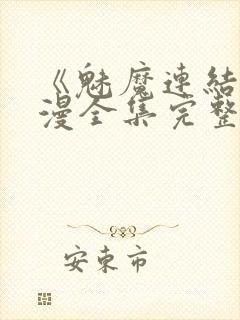 《魅魔連結
漫全集完整
安東市